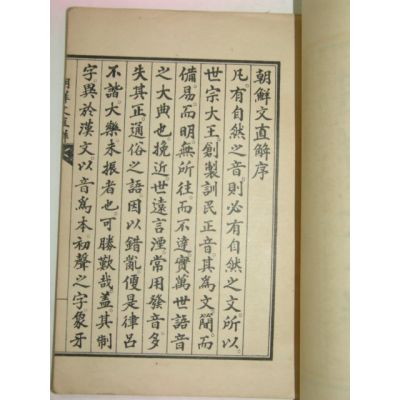 朝鮮文直解序
凡有自然之音則必有自然之文所以
世宗大王創製訓民正音其為文簡而
備易而明無所往而不達實萬世語音
之大典也挽近世遠言湮常用發音多
失其正通俗之語因以錯亂便是律呂
不諧大樂未振者也可勝歎哉蓋其制
字異於漢文以音為本初聲之字象牙